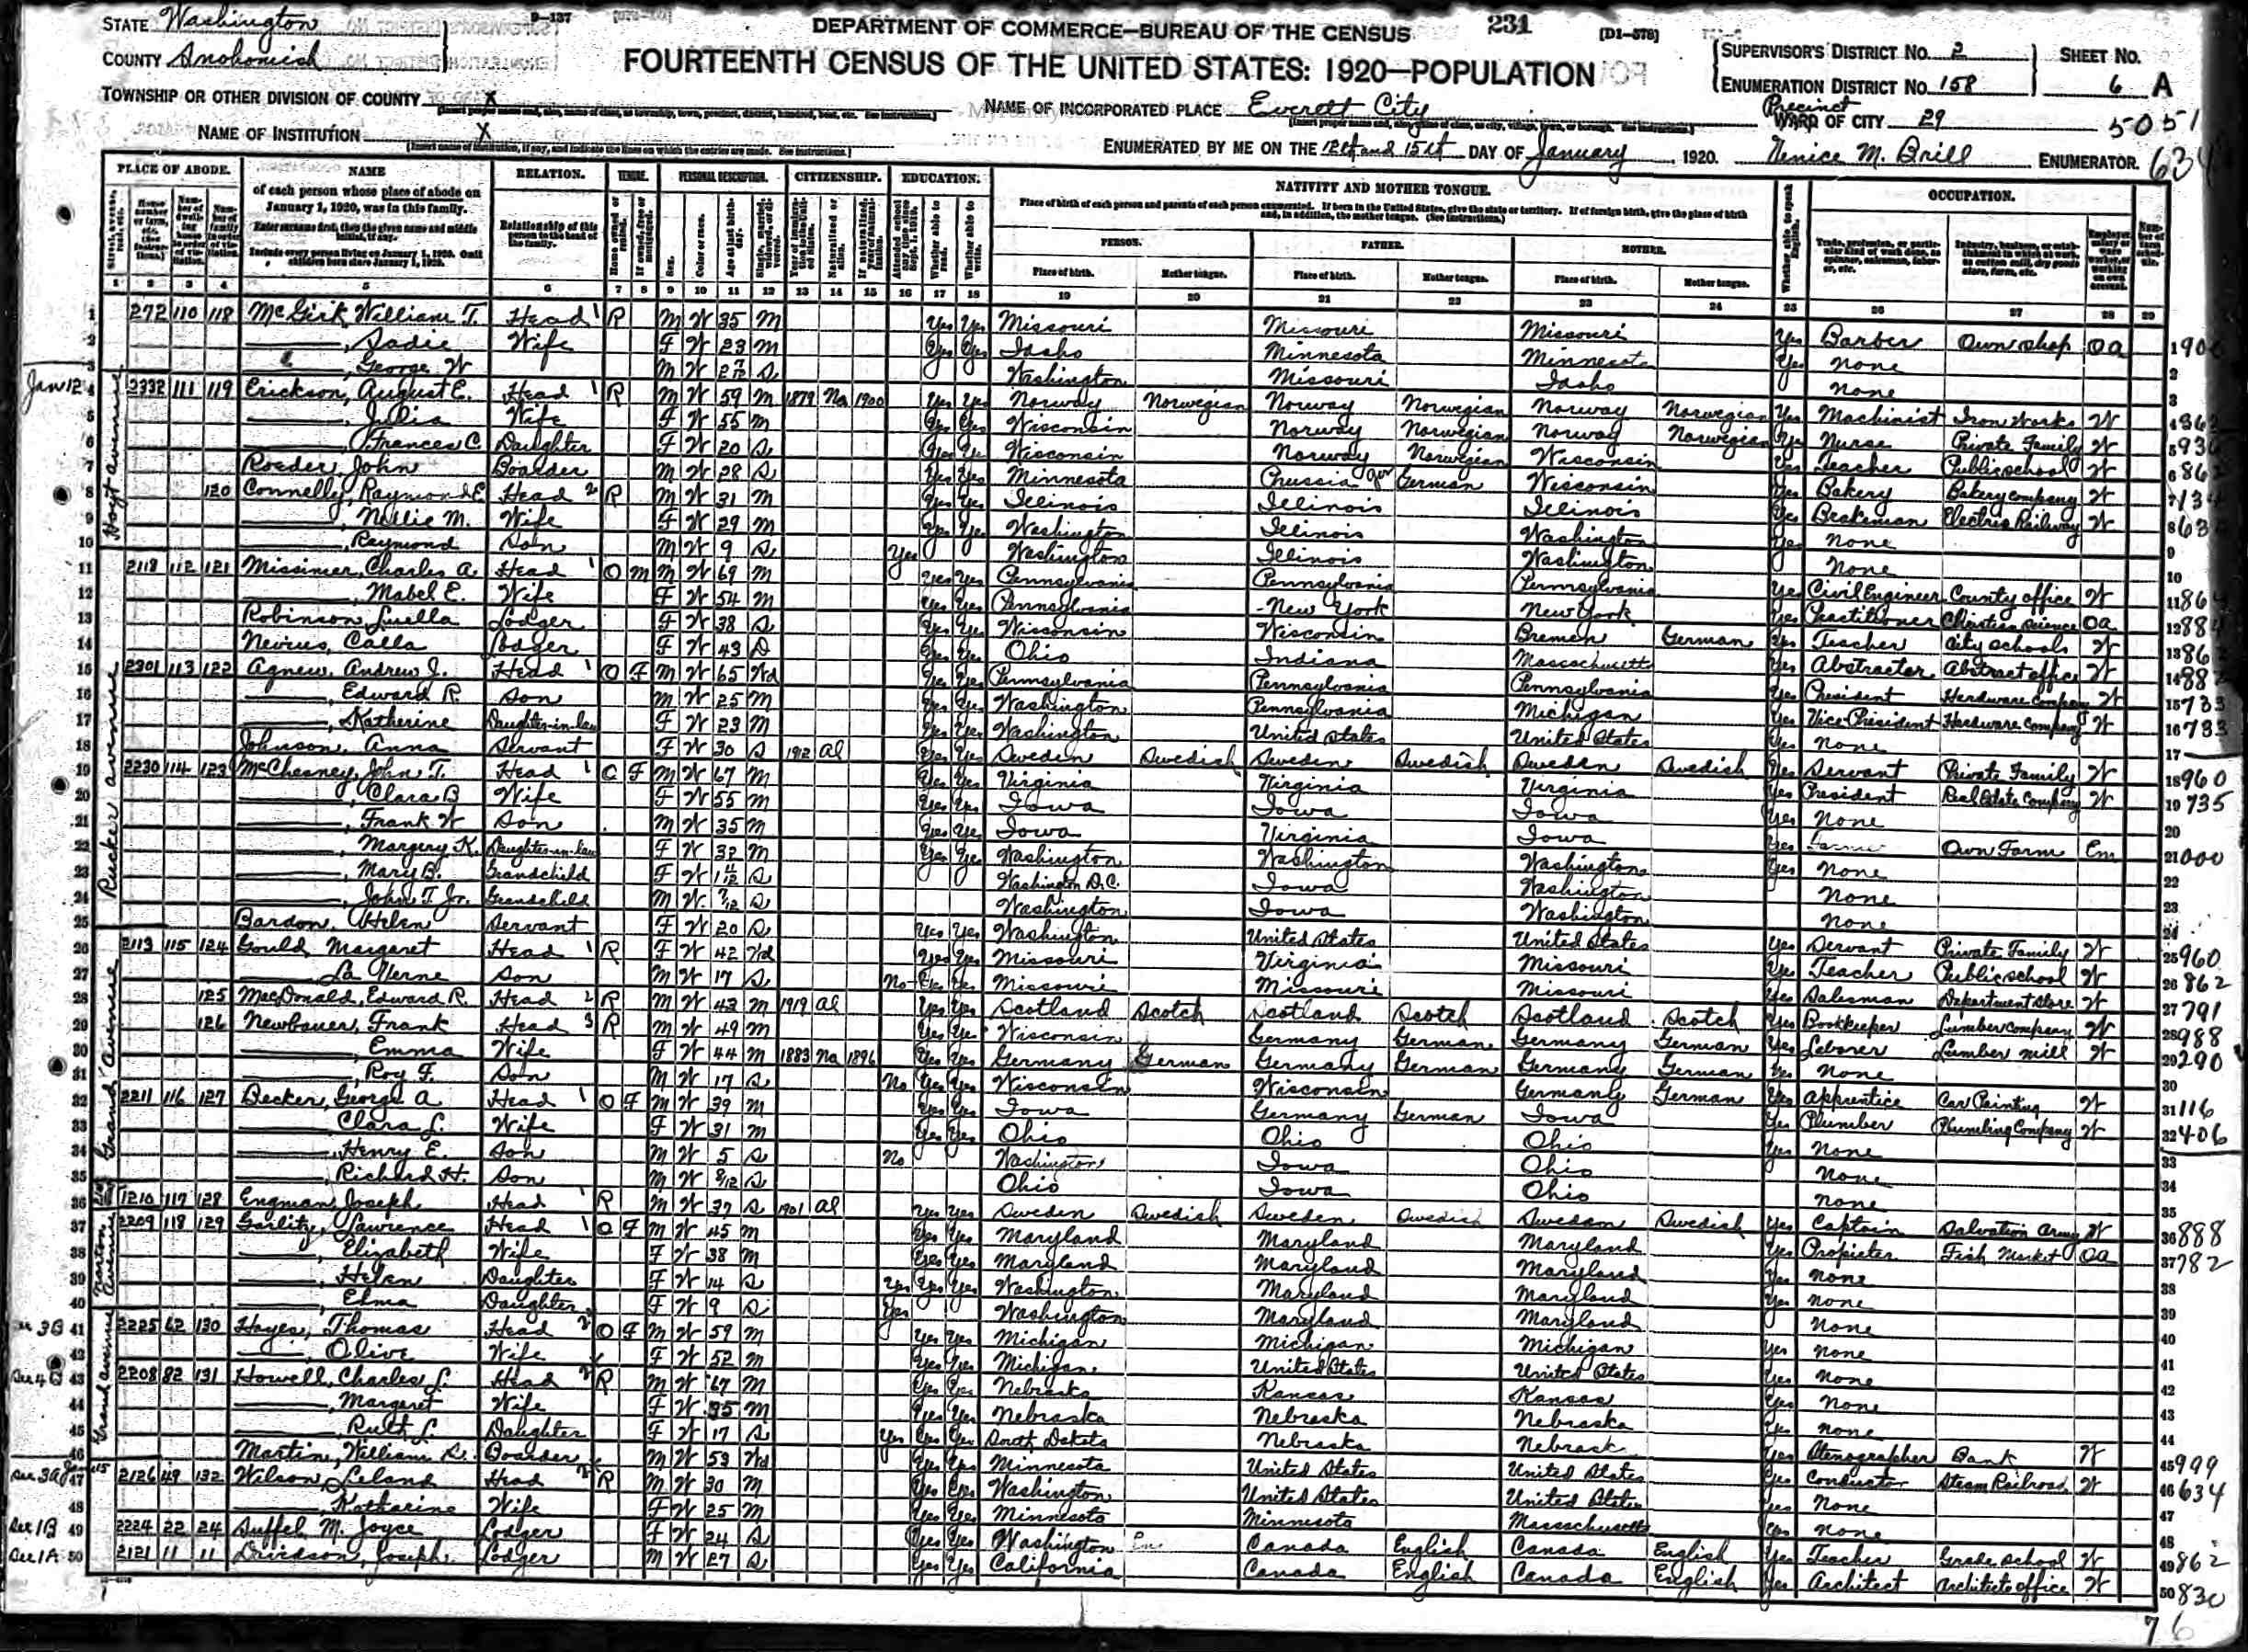 STATE Washington
COUNTY Snohomish
9-137
DEPARTMENT OF COMMERCE—BUREAU OF THE CENSUS
231
[D1-578]
FOURTEENTH CENSUS OF THE UNITED STATES: 1920—POPULATION
SUPERVISOR'S DISTRICT No. 2
ENUMERATION DISTRICT No. 158
SHEET No.
6 A
TOWNSHIP OR OTHER DIVISION OF COUNTY X
NAME OF INCORPORATED PLACE Everett City
Precinct
WARD OF CITY 29
5051
NAME OF INSTITUTION X
ENUMERATED BY ME ON THE 12th and 15th DAY OF January, 1920. Venice M. Brill ENUMERATOR.
634
PLACE OF ABODE. NAME RELATION. TENURE. PERSONAL DESCRIPTION. CITIZENSHIP. EDUCATION. NATIVITY AND MOTHER TONGUE. OCCUPATION.
of each person whose place of abode on January 1, 1920, was in this family.
PERSON. FATHER. MOTHER.
Place of birth. Mother tongue. Place of birth. Mother tongue. Place of birth. Mother tongue.
1 2 3 4 5 6 7 8 9 10 11 12 13 14 15 16 17 18 19 20 21 22 23 24 25 26 27 28 29
1 272 110 118 McGirk, William T. Head 1 R M W 35 M Yes Yes Missouri Missouri Missouri Yes Barber Own shop Oa
2 , Sadie Wife F W 23 M Yes Yes Idaho Minnesota Minnesota Yes None
3 , George W M W S Washington Missouri Idaho None
Jan 12 4 2332 111 119 Erickson, August E. Head 1 R M W 59 M 1879 Na 1900 Yes Yes Norway Norwegian Norway Norwegian Norway Norwegian Yes Machinist Iron Works W
5 , Julia Wife F W 55 M Yes Yes Wisconsin Norway Norwegian Norway Norwegian Yes Nurse Private Family W
6 , Frances C. Daughter F W 20 S Yes Yes Wisconsin Norway Norwegian Wisconsin Yes Teacher Public school W
7 Roeder, John Boarder M W 28 S Yes Yes Minnesota Prussia Ger German Wisconsin Yes Bakery Bakery company W
8 120 Connelly, Raymond E Head 2 R M W 31 M Yes Yes Illinois Illinois Illinois Yes Brakeman Electric Railway W
9 , Nellie M. Wife F W 29 M Yes Yes Washington Illinois Washington Yes None
10 , Raymond Son M W 9 S Yes Washington Illinois Washington None
11 2118 112 121 Missimer, Charles A. Head 1 O M M W 69 M Yes Yes Pennsylvania Pennsylvania Pennsylvania Yes Civil Engineer County office W
12 , Mabel E. Wife F W 54 M Yes Yes Pennsylvania New York New York Yes Practitioner Christian Science Oa
13 Robinson, Luella Lodger F W 38 S Yes Yes Wisconsin Wisconsin Bremen German Yes Teacher City schools W
14 Nevius, Calla Lodger F W 43 D Yes Yes Ohio Indiana Massachusetts Yes Abstracter Abstract office W
15 2301 113 122 Agnew, Andrew J. Head 1 O F M W 65 Wd Yes Yes Pennsylvania Pennsylvania Pennsylvania Yes President Hardware Company W 733
16 , Edward R. Son M W 25 M Yes Yes Washington Pennsylvania Michigan Yes Vice-President Hardware Company W 733
17 , Katherine Daughter-in-law F W 23 M Yes Yes Washington United States United States Yes None
18 Johnson, Anna Servant F W 30 S 1912 Al Yes Yes Sweden Swedish Sweden Swedish Sweden Swedish Yes Servant Private Family W 960
19 2230 114 123 McChesney, John T. Head 1 O F M W 67 M Yes Yes Virginia Virginia Virginia Yes President Real Estate Company W 735
20 , Clara B Wife F W 55 M Yes Yes Iowa Iowa Iowa Yes None
21 , Frank W Son M W 35 M Yes Yes Iowa Virginia Iowa Yes Own Farm Em 000
22 , Margery K. Daughter-in-law F W 32 M Yes Yes Washington Washington Washington Yes None
23 , Mary B. Grandchild F W 1 11/12 S Washington D.C. Iowa Washington None
24 , John T. Jr. Grandchild M W S Washington Iowa Washington None
25 Bardon, Helen Servant F W 20 S Yes Yes Washington United States United States Yes Servant Private Family W 960
26 2113 115 124 Gould, Margaret Head 1 R F W 42 Wd Yes Yes Missouri Virginia Missouri Yes Teacher Public school W 862
27 , La Verne Son M W 17 S No Yes Yes Missouri Missouri Missouri Yes Salesman Department Store W 791
28 125 MacDonald, Edward R. Head 2 R M W 43 M 1919 Al Yes Yes Scotland Scotch Scotland Scotch Scotland Scotch Yes Bookkeeper Lumber Company W 988
29 126 Newbauer, Frank Head 3 R M W 49 M Yes Yes Wisconsin Germany German Germany German Yes Laborer Lumber mill W 290
30 , Emma Wife F W 44 M 1883 Na 1896 Yes Yes Germany German Germany German Germany German Yes None
31 , Roy F. Son M W 17 S No Yes Yes Wisconsin Wisconsin Germany German Yes Apprentice Car Painting W 116
32 2211 116 127 Becker, George A. Head 1 O F M W 39 M Yes Yes Iowa Germany German Iowa Yes Plumber Plumbing Company W 406
33 Clara L. Wife F W 31 M Yes Yes Ohio Ohio Ohio Yes None
34 , Henry E. Son M W 5 S No Washington Iowa Ohio None
35 , Richard H. Son M W S Ohio Iowa Ohio None
36 1210 117 128 Engman, Joseph Head 1 R M W 37 S 1901 Al Yes Yes Sweden Swedish Sweden Swedish Sweden Swedish Yes Captain Salvation Army W 888
37 2209 118 129 Garlitz, Lawrence Head 1 O F M W 45 M Yes Yes Maryland Maryland Maryland Yes Propieter Fish Market Oa 782
38 , Elizabeth Wife F W 38 M Yes Yes Maryland Maryland Maryland Yes None
39 , Helen Daughter F W 14 S Yes Yes Yes Washington Maryland Maryland Yes None
40 , Elma Daughter F W 9 S Yes Washington Maryland Maryland None
41 2225 62 130 Hayes, Thomas Head 2 O F M W 59 M Yes Yes Michigan Michigan Michigan Yes None
42 , Olive Wife F W 52 M Yes Yes Michigan United States United States Yes None
43 2208 82 131 Howell, Charles L. Head 2 R M W 67 M Yes Yes Nebraska Kansas Kansas Yes None
44 , Margaret Wife F W 35 M Yes Yes Nebraska Nebraska Nebraska Yes None
45 Ruth L. Daughter F W 17 S Yes Yes Yes South Dakota Nebraska Nebrask Yes Stenographer Bank W 999
46 Martin, William S. Boarder M W 53 Wd Yes Yes Minnesota United States United States Yes Conductor Steam Railroad W 634
47 2126 49 132 Wilson, Leland Head 2 R M W 30 M Yes Yes Washington United States United States Yes None
48 Katharine Wife F W 25 M Yes Yes Minnesota Minnesota Massachusetts Yes None
49 2224 22 24 Suffel, M. Joyce Lodger F W 24 S Yes Yes Washington Canada English Canada English Yes Teacher Grade school W 862
50 2121 11 11 Davidson, Joseph Lodger M W 27 S Yes Yes California Canada English Canada English Yes Architect Architects office W 830
Hoyt avenue
Rucker avenue
Grand Avenue
Grand avenue
76